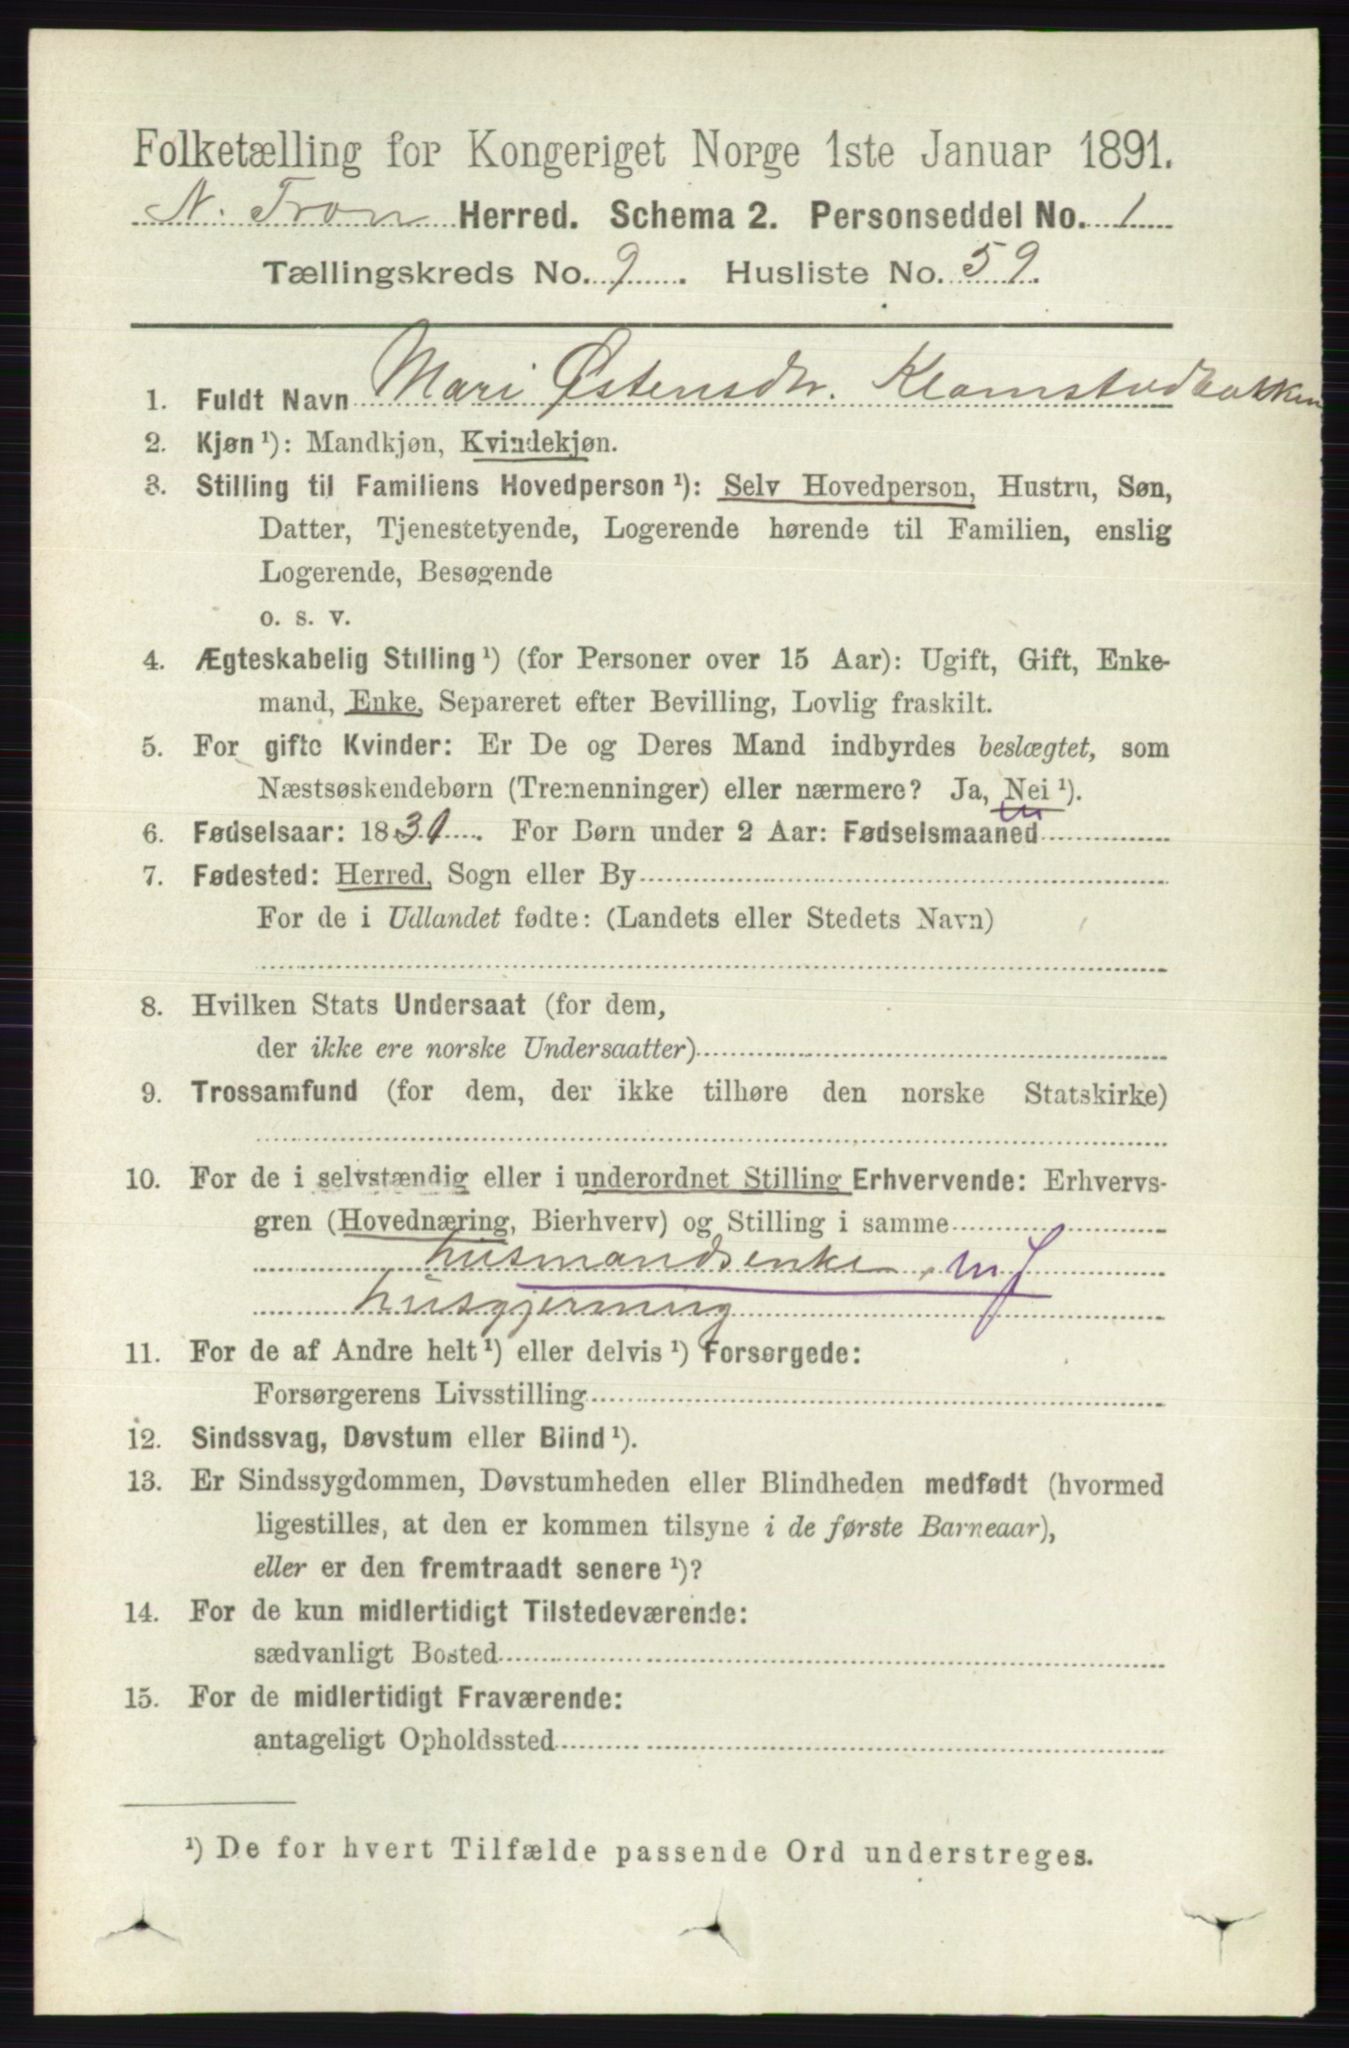 Folketælling for Kongeriget Norge 1ste Januar 1891.
N. Fron Herred. Schema 2. Personseddel No. 1
Tællingskreds No. 9. Husliste No. 59.
1. Fuldt Navn Mari Østensdtr. Klomstadbakken
2. Kjøn ¹): Mandkjøn, Kvindekjøn.
3. Stilling til Familiens Hovedperson ¹): Selv Hovedperson, Hustru, Søn,
Datter, Tjenestetyende, Logerende hørende til Familien, enslig
Logerende, Besøgende
o. s. v.
4. Ægteskabelig Stilling ¹) (for Personer over 15 Aar): Ugift, Gift, Enke-
mand, Enke, Separeret efter Bevilling, Lovlig fraskilt.
5. For gifte Kvinder: Er De og Deres Mand indbyrdes beslægtet, som
Næstsøskendebørn (Tremenninger) eller nærmere? Ja, Nei ¹).
6. Fødselsaar: 1831. For Børn under 2 Aar: Fødselsmaaned
7. Fødested: Herred, Sogn eller By
For de i Udlandet fødte: (Landets eller Stedets Navn)
8. Hvilken Stats Undersaat (for dem,
der ikke ere norske Undersaatter)
9. Trossamfund (for dem, der ikke tilhøre den norske Statskirke)
10. For de i selvstændig eller i underordnet Stilling Erhvervende: Erhvervs-
gren (Hovednæring, Bierhverv) og Stilling i samme
husmandsenke mf
husgjerning
11. For de af Andre helt ¹) eller delvis ¹) Forsørgede:
Forsørgerens Livsstilling
12. Sindssvag, Døvstum eller Blind ¹).
13. Er Sindssygdommen, Døvstumheden eller Blindheden medfødt (hvormed
ligestilles, at den er kommen tilsyne i de første Barneaar),
eller er den fremtraadt senere ¹)?
14. For de kun midlertidigt Tilstedeværende:
sædvanligt Bosted
15. For de midlertidigt Fraværende:
antageligt Opholdssted
¹) De for hvert Tilfælde passende Ord understreges.